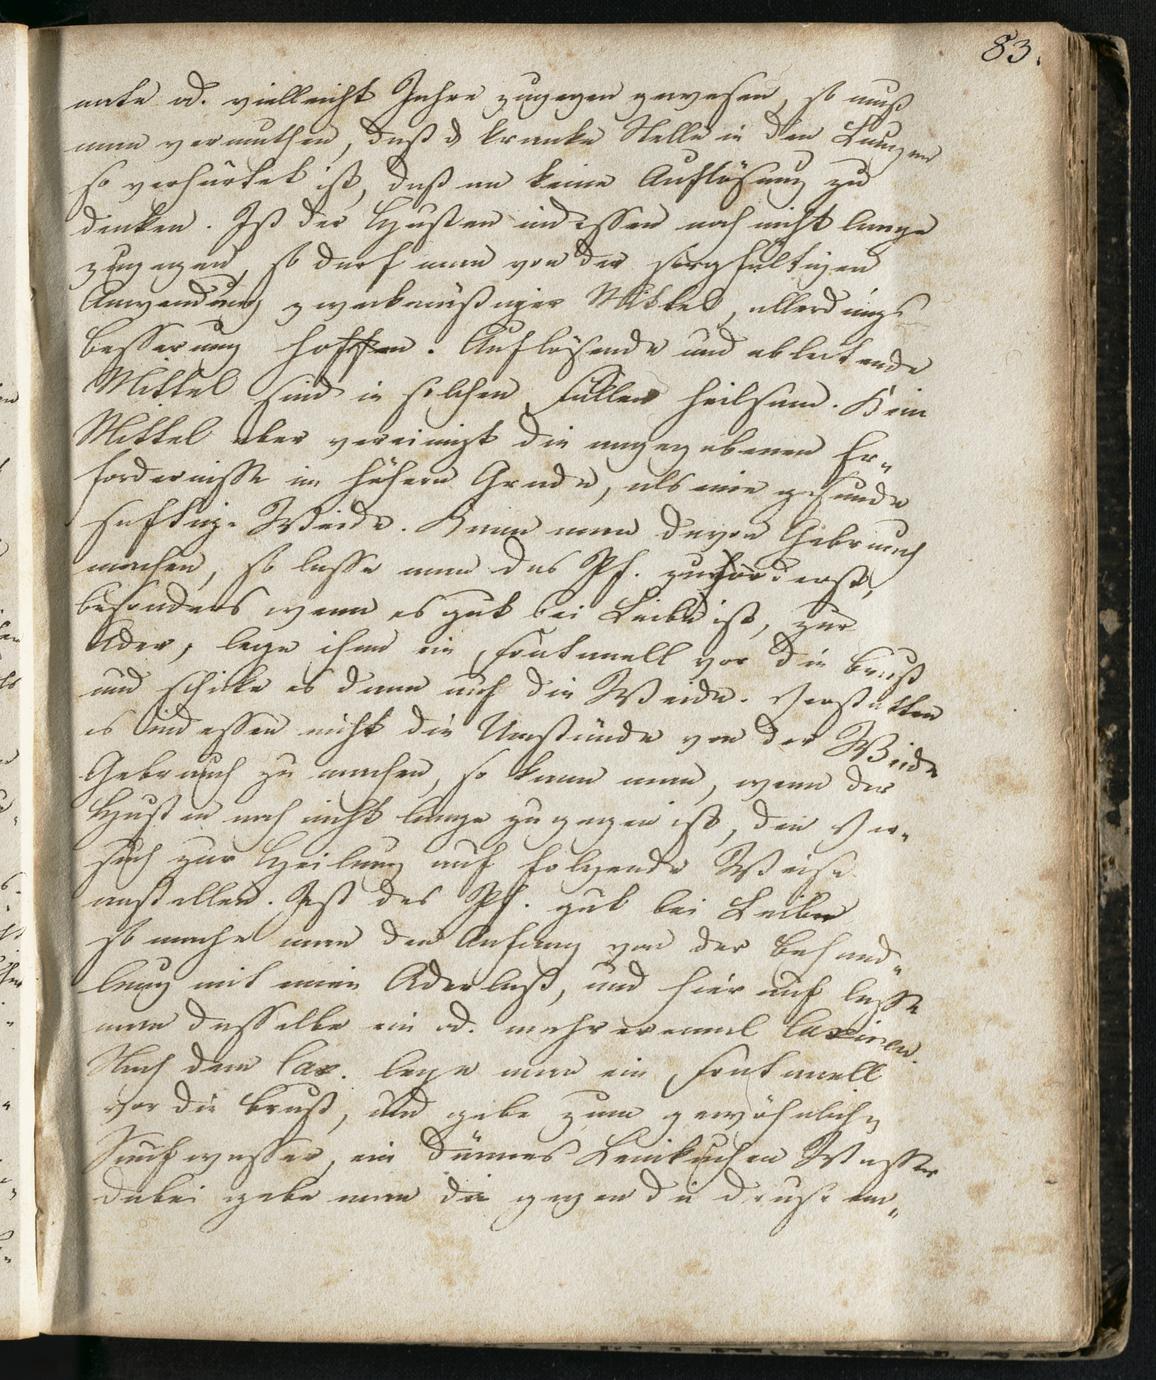 83.
nate od. vielleicht Jahre zugegen gewesen, so muß
man vermuthen, daß d kranke Stelle in den Lungen
so verhärtet ist, daß an keine Auflösung zu
denken. Ist der Husten indessen noch nicht lange
zugegen, so darf man von der sorgfältigen
Anwendung zweckmäßiger Mittel, allerdings
Besserung hoffen. Auflösende und ableitende
Mittel sind in solchen Fällen heilsam. Kein
Mittel aber vereinigt die angegebenen Er„
fordernisse im höhern Grade, als eine gesunde
saftige Weide. Kann man davon Gebrauch
machen, so lasse man das Pf. zuförderst,
besonders wenn es gut bei Leibe ist, zur
Ader, lege ihm ein Fontanell vor die Brust
und schicke es dann auf die Weide. Verstatten
es indessen nicht die Umstände von der Weide
Gebrauch zu machen, so kann man, wenn der
Husten noch nicht lange zugegen ist, den Ver„
such zur Heilung auf folgende Weise
anstellen. Ist das Pf. gut bei Leibe
so mache man den Anfang von der Behand„
lung mit einen Aderlaß, und hierauf lasse
man dasselbe ein od. mehreremal laxiren.
Nach dem lax. lege man ein Fontanell
vor die Brust, und gebe zum gewöhnlichn
Saufwasser, ein dünnes Leinkuchen Wasser
dabei gebe man die gegen die Druse an„